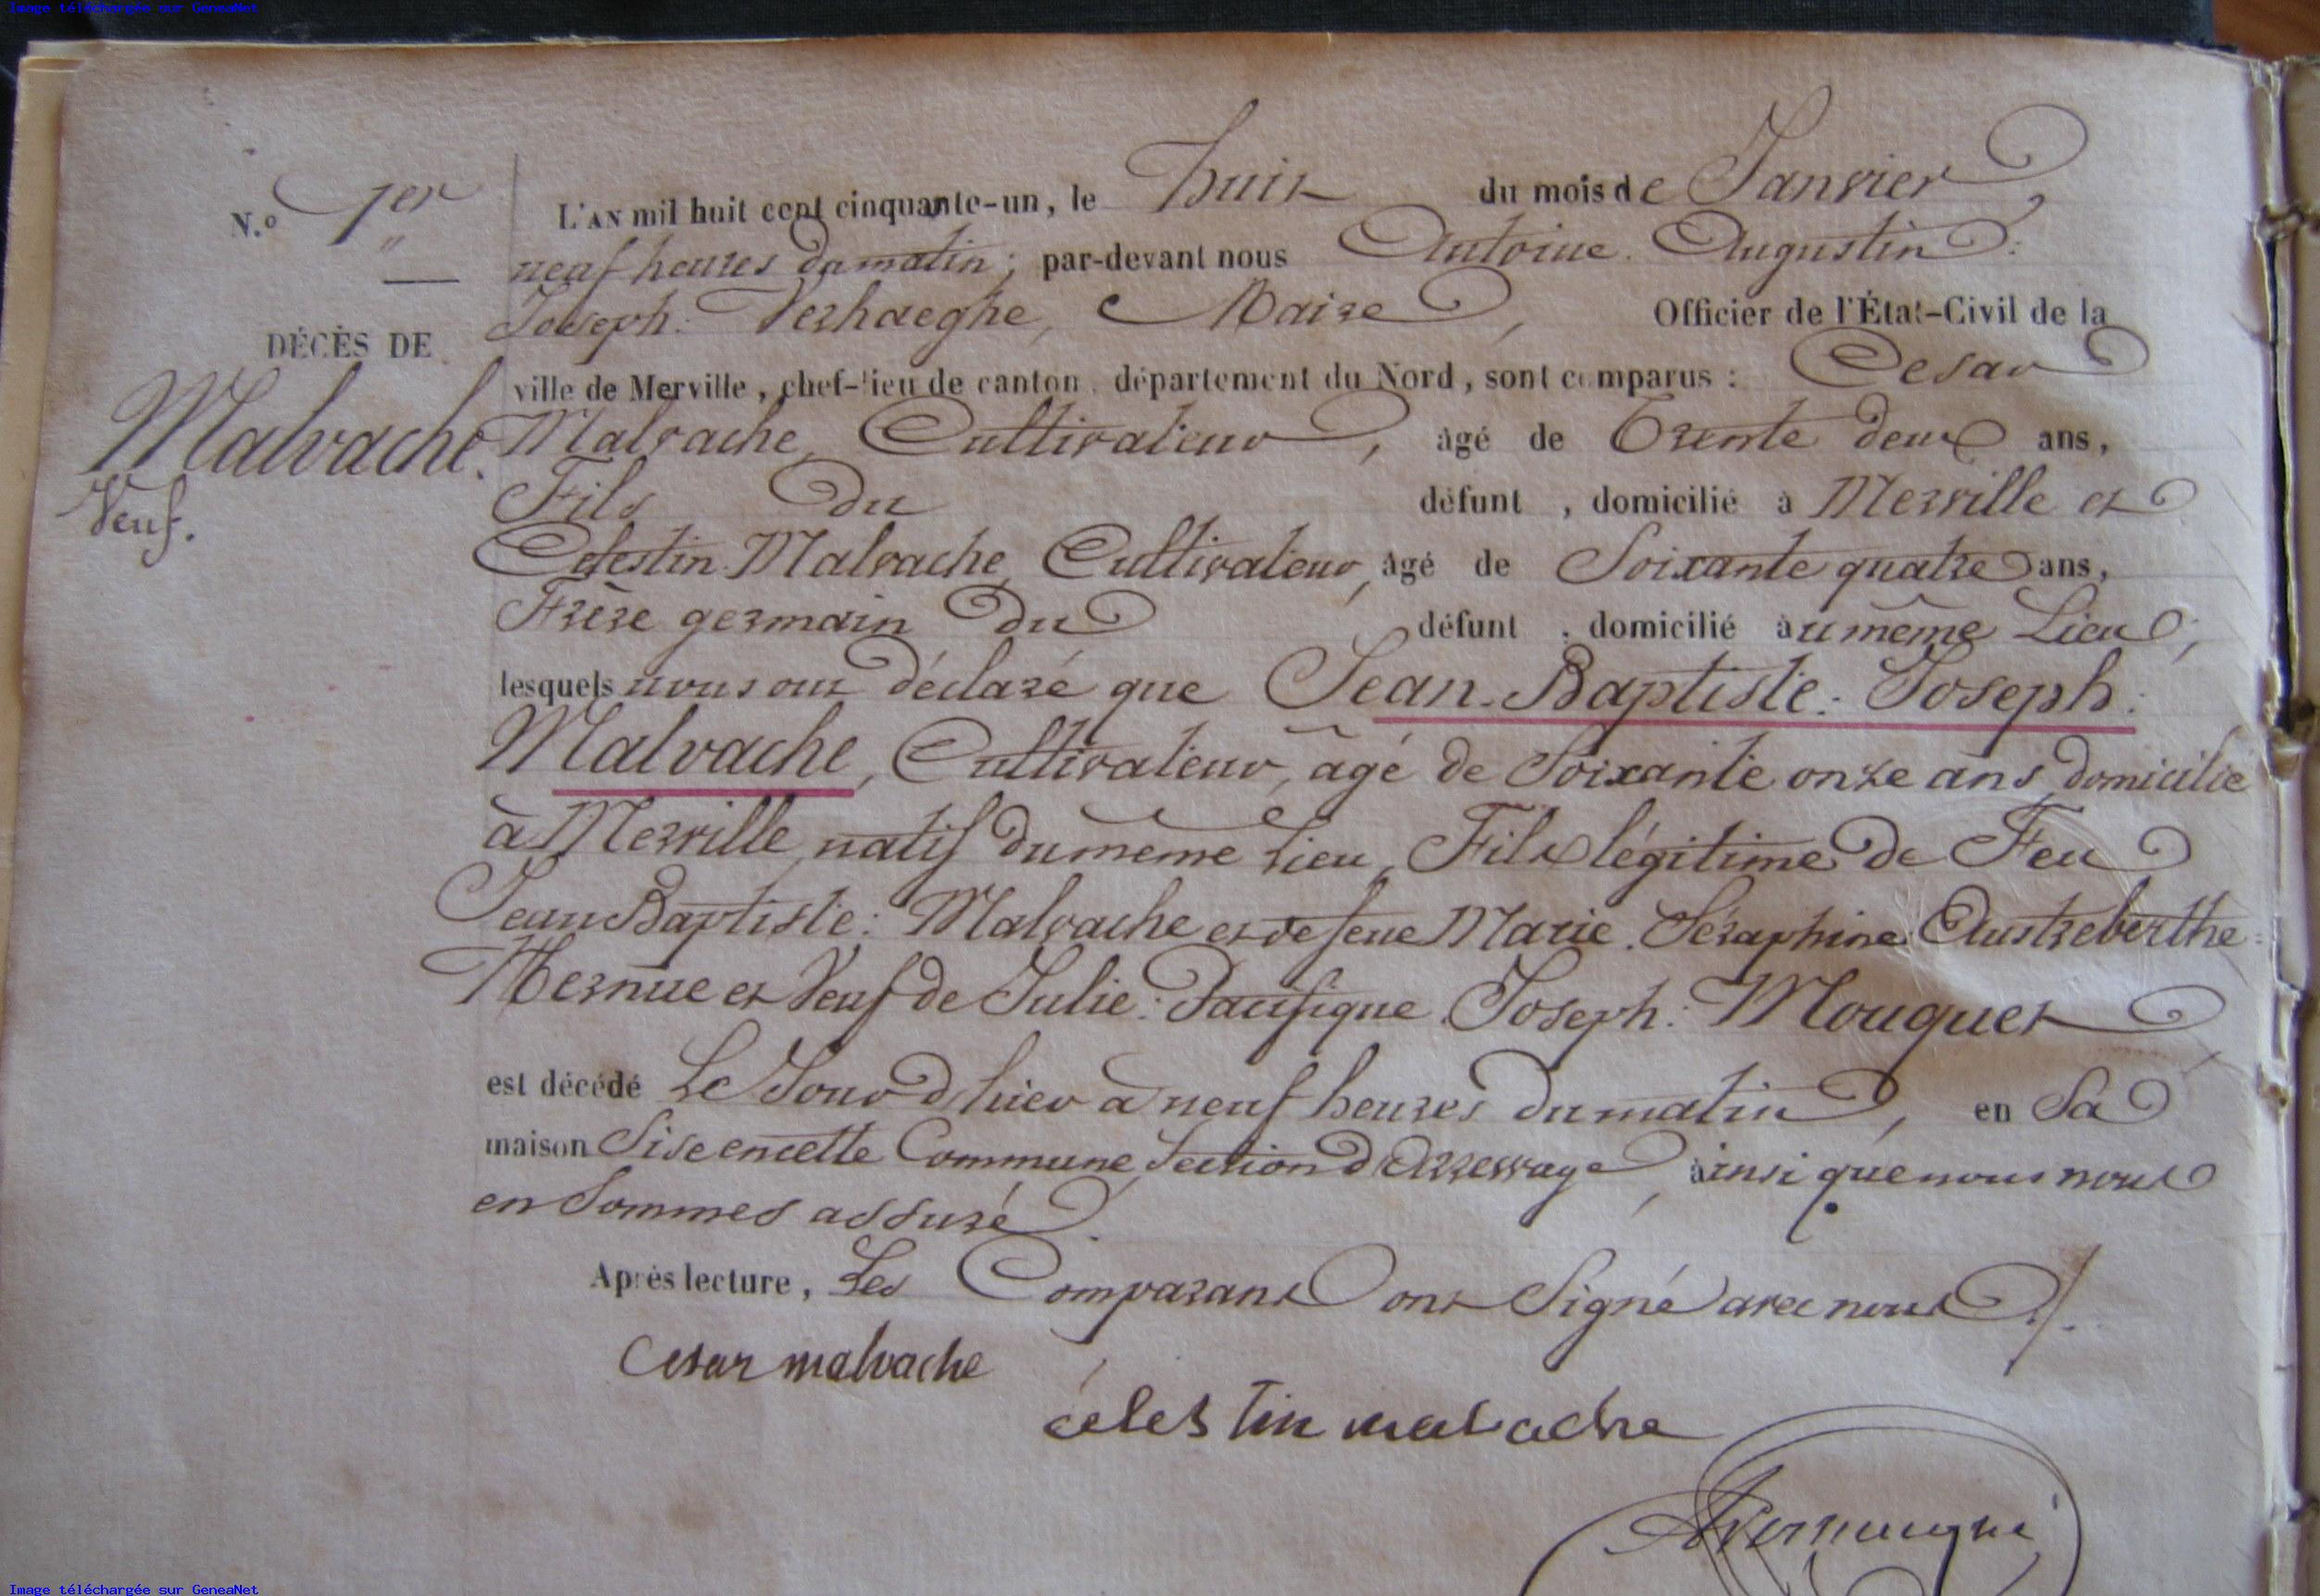 Image téléchargée sur GeneaNet
N.o 1er
L'AN mil huit cent cinquante-un, le huit du mois de Janvier,
neuf heures du matin; par-devant nous Antoine. Augustin:
Joseph: Verhaeghe, Maire, Officier de l'État-Civil de la
DÉCÈS DE
ville de Merville, chef-lieu de canton, département du Nord, sont comparus: Cesar
Malvache.
Malvache, Cultivateur, âgé de Trente deux ans,
Veuf.
Fils du défunt, domicilié à Merville et
Celestin Malvache, Cultivateur, âgé de Soixante quatre ans,
Frère germain du défunt, domicilié au même Lieu;
lesquels nous ont déclaré que Jean-Baptiste: Joseph:
Malvache, Cultivateur, âgé de Soixante onze ans, domicilié
à Merville, natif du même lieu, Fils légitime de Feu
Jean Baptiste: Malvache et de feue Marie. Séraphine Austreberthe
et Veuf de Julie: Pacifique Joseph: Mouquet
est décédé Le Jour d'hier à neuf heures du matin, en Sa
maison Sise en cette Commune, Section d' ainsi que nous nous
en Sommes assuré.
Après lecture, Les Comparant ont Signé avec nous ./.
Cesar malvache
célestin malvache
Image téléchargée sur GeneaNet